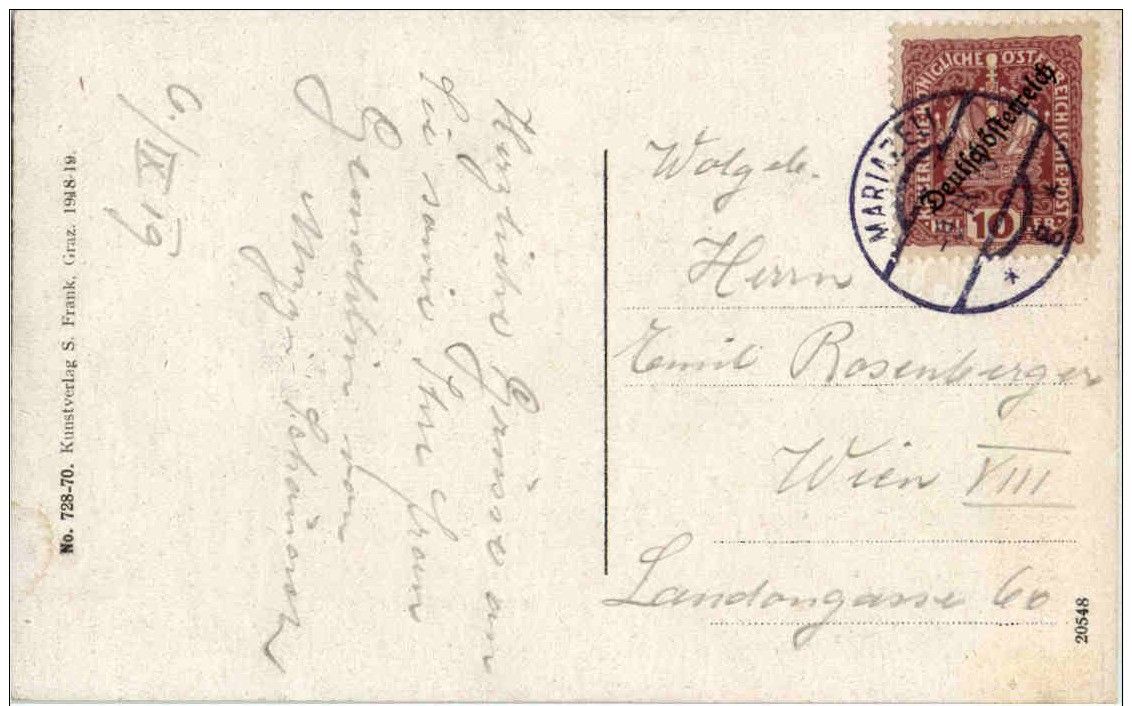 No. 728-70. Kunstverlag S. Frank, Graz. 1918-19.
6./IX 19
Herzliche Grüsse an
Sie sowie Ihre Frau
Gemahlin von
Mizzi
KAISERLICH KÖNIGLICHE ÖSTERREICHISCHE POST
Deutschösterreich
10
MARIAZELL
Wolgeb.
Herrn
Emil Rosenberger
Wien VIII
Landongasse 60
20548